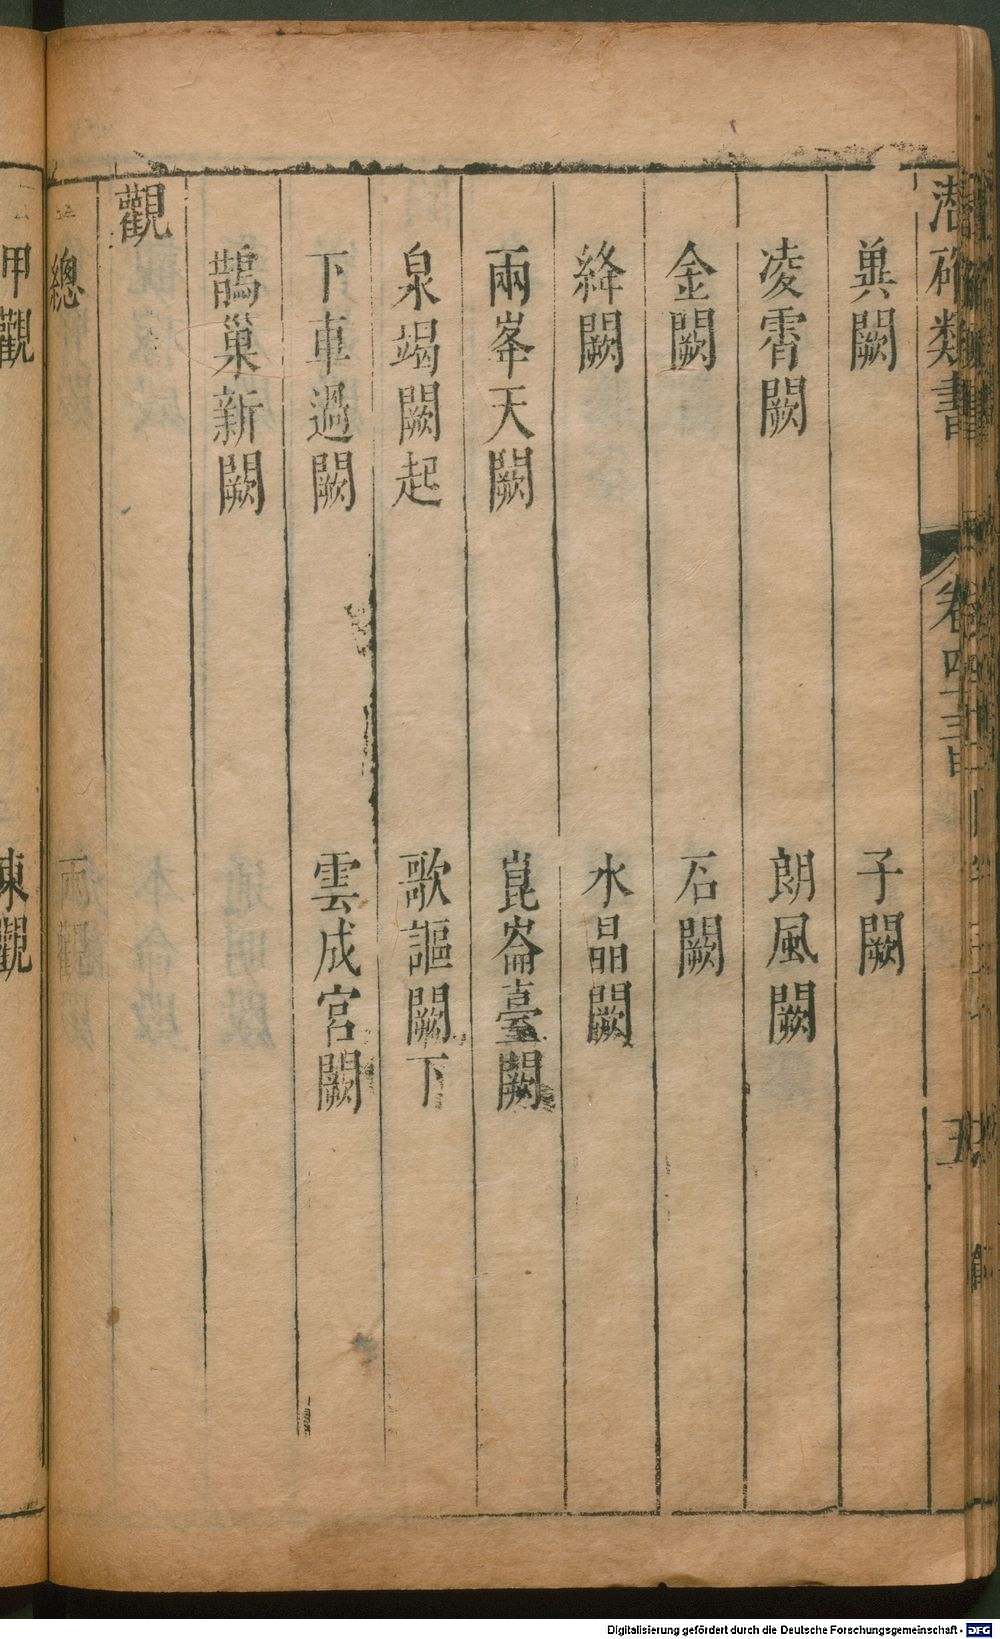 潛確類書 卷四十三 五
冀闕 子闕
凌霄闕 朗風闕
金闕 石闕
絳闕 水晶闕
兩峯天闕 崑崙臺闕
泉竭闕起 歌謳闕下
下車過闕 雲成宮闕
鵲巢新闕
觀
總 兩觀
甲觀 東觀
Digitalisierung gefördert durch die Deutsche Forschungsgemeinschaft - DFG